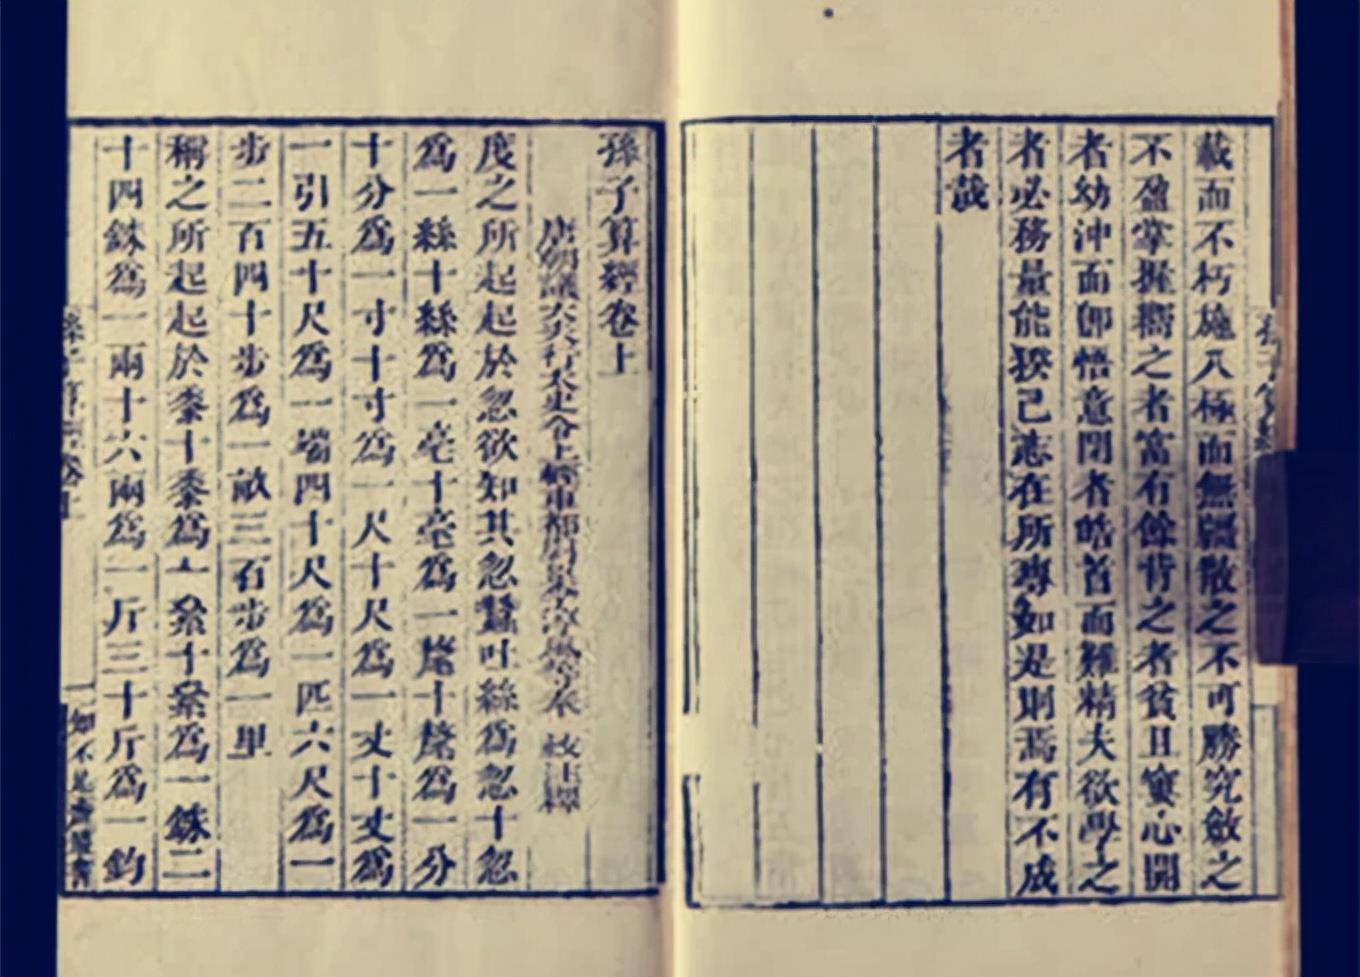 載而不朽施八極而無疆散之不可勝究斂之
不盈掌握嚮之者富有餘背之者貧且窶心開
者幼沖而即悟意閉者皓首而難精夫欲學之
者必務量能揆己志在所專如是則焉有不成
者哉
孫子算經卷上
唐朝議大夫行太史令上輕車都尉臣李淳風等奉 敕注釋
度之所起起於忽欲知其忽蠶吐絲為忽十忽
為一絲十絲為一毫十毫為一氂十氂為一分
十分為一寸十寸為一尺十尺為一丈十丈為
一引五十尺為一端四十尺為一匹六尺為一
步二百四十步為一畝三百步為一里
稱之所起起於黍十黍為一絫十絫為一銖二
十四銖為一兩十六兩為一斤三十斤為一鈞
知不足齋叢書